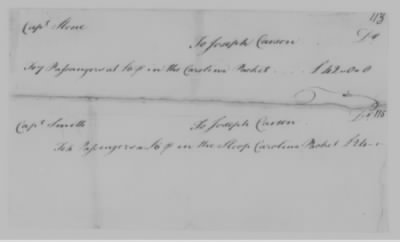 113
Capt. Stone
To Joseph Carson Dr
To 7 Passangers at 6 P in the Carolina Packet £42-0-0
Dr 115
Capt. Smith To Joseph Carson
To 4 Passengers a 6 P in the Sloop Carolina Packet £24-